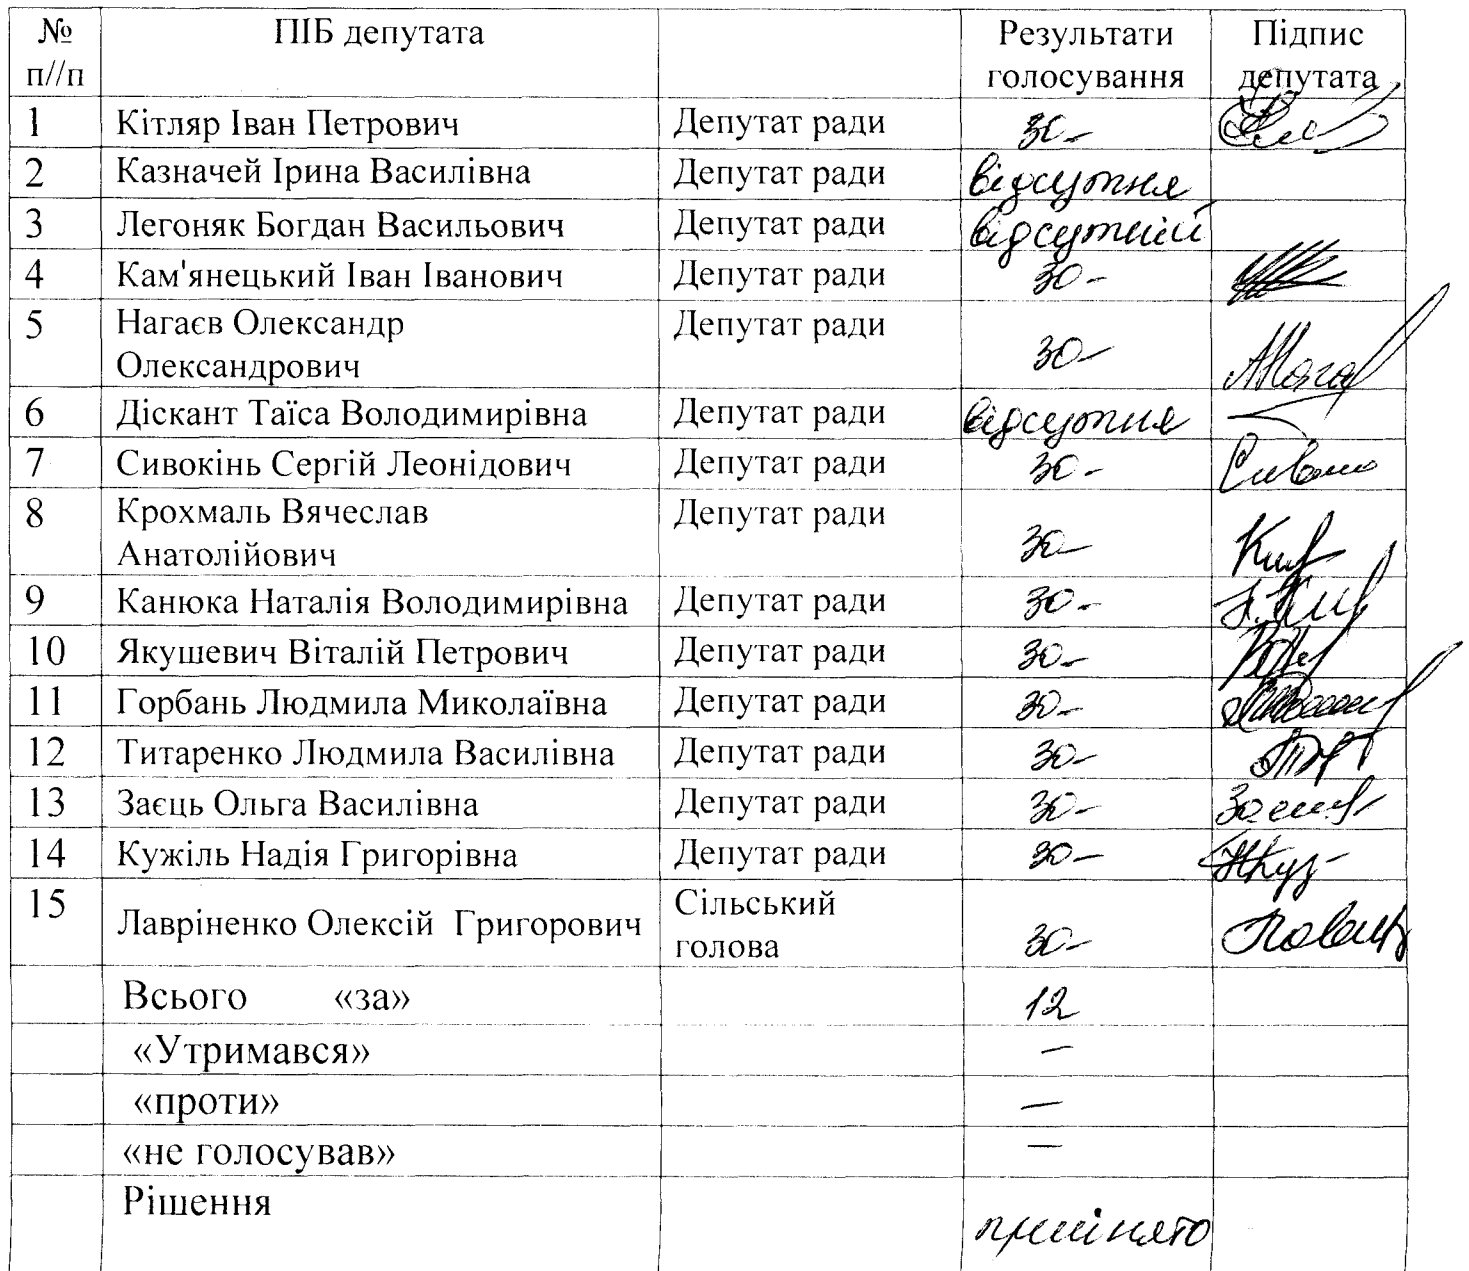 № ПІБ депутата Результати Підпис
п//п голосування депутата
1 Кітляр Іван Петрович Депутат ради за
2 Казначей Ірина Василівна Депутат ради відсутня
3 Легоняк Богдан Васильович Депутат ради відсутній
4 Кам'янецький Іван Іванович Депутат ради за
5 Нагаєв Олександр Депутат ради
Олександрович за
6 Діскант Таїса Володимирівна Депутат ради відсутня
7 Сивокінь Сергій Леонідович Депутат ради за
8 Крохмаль Вячеслав Депутат ради
Анатолійович за
9 Канюка Наталія Володимирівна Депутат ради за
10 Якушевич Віталій Петрович Депутат ради за
11 Горбань Людмила Миколаївна Депутат ради за
12 Титаренко Людмила Василівна Депутат ради за
13 Заєць Ольга Василівна Депутат ради за
14 Кужіль Надія Григорівна Депутат ради за
15 Лавріненко Олексій Григорович Сільський
голова за
Всього «за» 12
«Утримався» —
«проти» —
«не голосував» —
Рішення прийнято